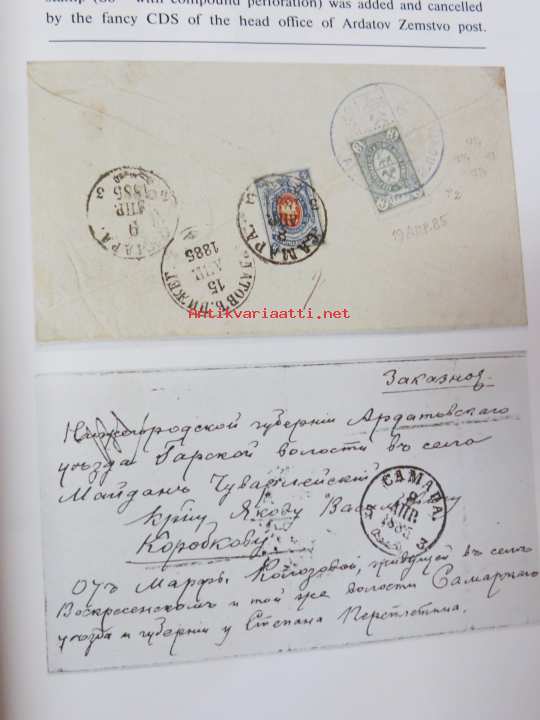 stamp (C6 – with compound perforation) was added and cancelled
by the fancy CDS of the head office of Ardatov Zemstvo post.
САМАРА
9
АПР.
1885
3
САМАРА.
8
АПР.
3
АРДАТОВЪ.НИЖЕГ.
15
АПР.
1885
19 Апр. 85
antikvariaatti.net
Заказное.
Нижегородской губернiи Ардатовскаго
уѣзда Гарской волости въ село
Майданъ Чуварлейскiй
крн҃у Якову Васильевичу
Коробкову
САМАРА.
8
АПР.
1885
3
Отъ Марфы Колозовой, живущей въ селе
Воскресенскомъ и той же волости Самарскаго
уѣзда и губернiи у Степана Переплетина.